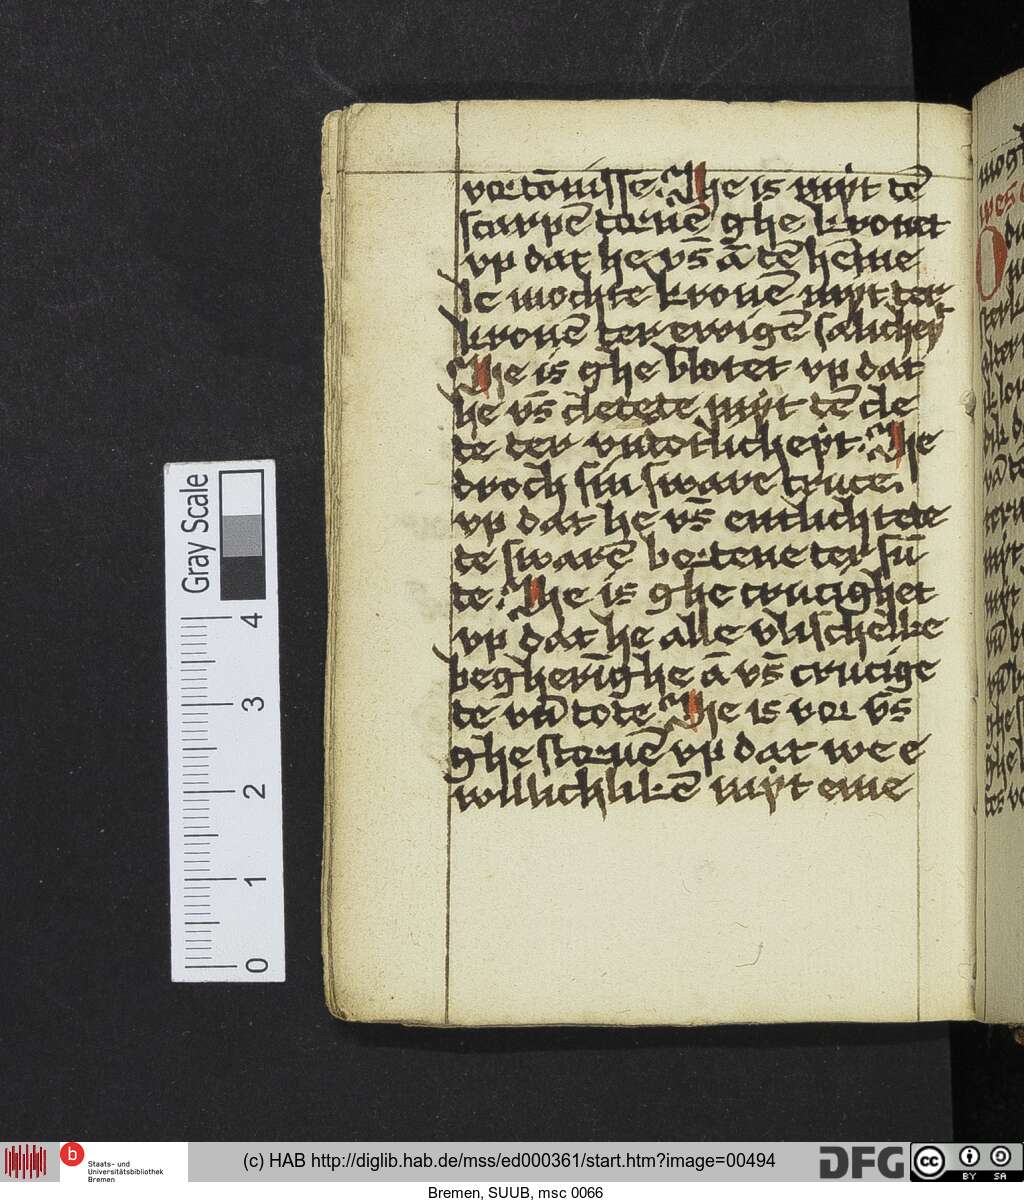 vortōnisse. He is mẏt tē
scarpē tornē ghe kronet
vp dat he vs̄ ā tē hēme
le mochte kronē mẏt ter
kronē ter ewigē salicheẏt
He is ghe blotet vp dat
he vs̄ cletete mẏt tē cle
te ter vntotlicheẏt. He
droch sin sware cruce
vp dat he vs̄ entlichtete
te swarē bortene ter sū
te. He is ghe crucighet
vp dat he alle vlischelike
begherīghe ā vs̄ crucige
te vn̄ tote. He is vor vs̄
ghe stornē vp dat we e
willichlikē mẏt eme
Gray Scale
4
3
2
1
0
b
Staats- und
Universitätsbibliothek
Bremen
(c) HAB http://diglib.hab.de/mss/ed000361/start.htm?image=00494
DFG
cc
BY SA
Bremen, SUUB, msc 0066